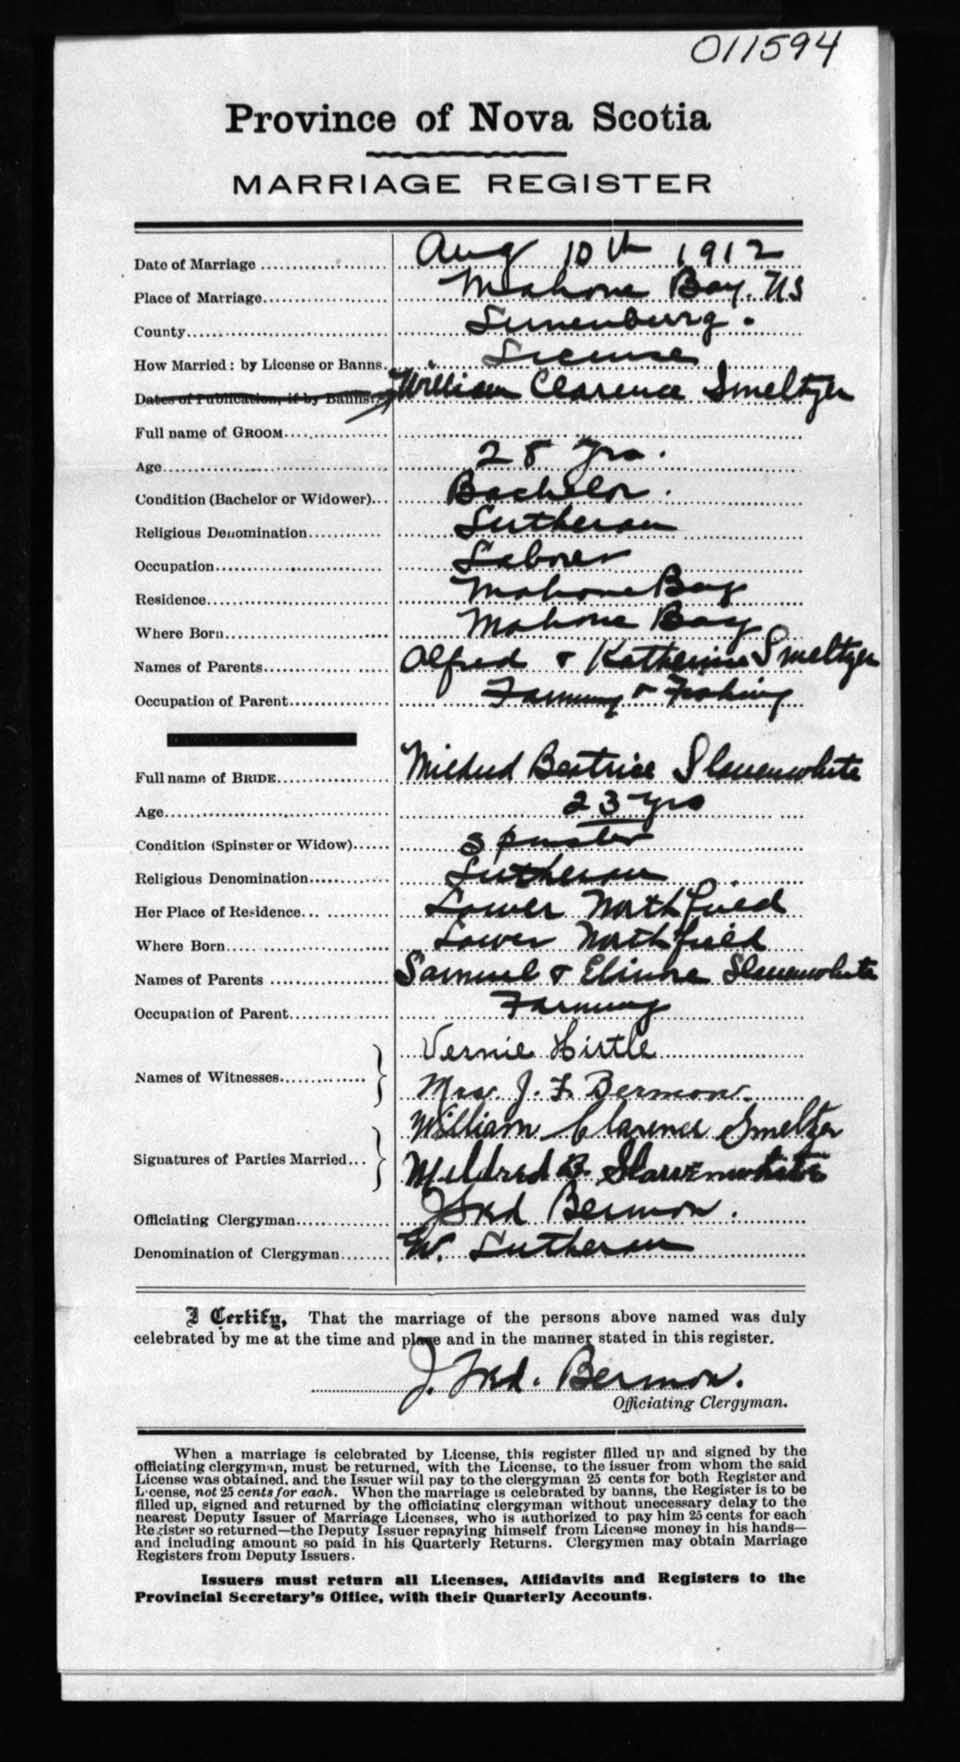 011594
Province of Nova Scotia
MARRIAGE REGISTER
Date of Marriage Aug 10th 1912
Place of Marriage Mahone Bay. NS
County Lunenburg.
How Married: by License or Banns. License
Dates of Publication, if by Banns. William Clarence Smeltzer
Full name of GROOM
Age 28 yrs.
Condition (Bachelor or Widower) Bachelor.
Religious Denomination Lutheran
Occupation Laborer
Residence Mahone Bay
Where Born Mahone Bay
Names of Parents Alfred & Katherine Smeltzer
Occupation of Parent Farming & Fishing
Full name of BRIDE Mildred Beatrice Slauenwhite
Age 23 yrs
Condition (Spinster or Widow) Spinster
Religious Denomination Lutheran
Her Place of Residence Lower Northfield
Where Born Lower Northfield
Names of Parents Samuel & Elinore Slauenwhite
Occupation of Parent Farming
Vernie Hirtle
Names of Witnesses
Mrs. J. F. Bermon.
William Clarence Smeltzer
Signatures of Parties Married
Mildred B. Slauenwhite
Officiating Clergyman J Fred Bermon.
Denomination of Clergyman Ev. Lutheran
I Certify, That the marriage of the persons above named was duly
celebrated by me at the time and place and in the manner stated in this register.
J. Fred. Bermon.
Officiating Clergyman.
When a marriage is celebrated by License, this register filled up and signed by the
officiating clergyman, must be returned, with the License, to the issuer from whom the said
License was obtained, and the Issuer will pay to the clergyman 25 cents for both Register and
License, not 25 cents for each. When the marriage is celebrated by banns, the Register is to be
filled up, signed and returned by the officiating clergyman without unecessary delay to the
nearest Deputy Issuer of Marriage Licenses, who is authorized to pay him 25 cents for each
Register so returned—the Deputy Issuer repaying himself from License money in his hands—
and including amount so paid in his Quarterly Returns. Clergymen may obtain Marriage
Registers from Deputy Issuers.
Issuers must return all Licenses, Affidavits and Registers to the
Provincial Secretary's Office, with their Quarterly Accounts.